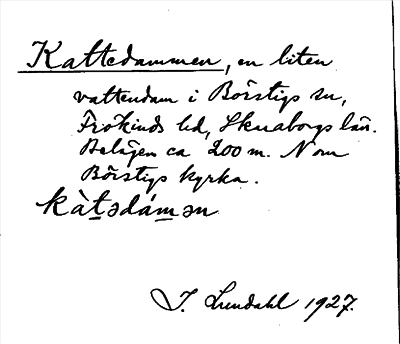 Kattedammen, en liten
vattendam i Börstigs sn,
Frökinds hd, Skaraborgs län.
Belägen ca 200 m. N om
Börstigs kyrka.
kàtədámən
J. Lundahl 1927.